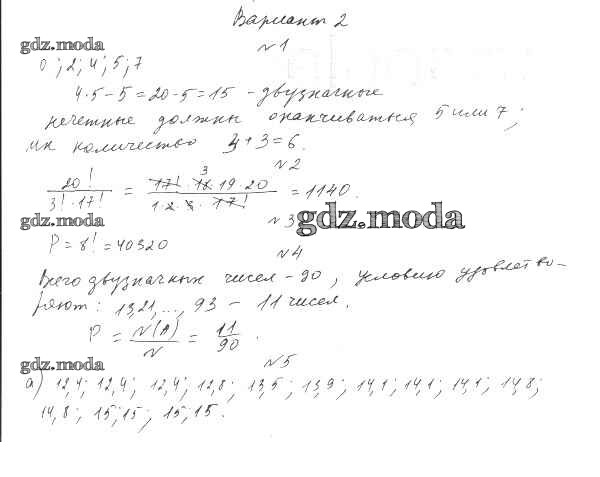 Вариант 2
gdz.moda
№1
0; 2; 4; 5; 7
4·5-5=20-5=15 - двузначные
нечетные должны оканчиваться 5 или 7;
их количество 3+3=6.
№2
20! / 3!·17! = 17!·18·19·20 / 1·2·3·17! = 1140.
3
gdz.moda
№3
gdz.moda
P=8!=40320
№4
Всего двузначных чисел - 90, условию удовлетво-
ряют: 13,21,..., 93 - 11 чисел.
P = N(A) / N = 11 / 90.
gdz.moda
№5
а) 12,4; 12,4; 12,4; 12,8; 13,5; 13,9; 14,1; 14,1; 14,1; 14,8;
14,8; 15; 15; 15; 15.